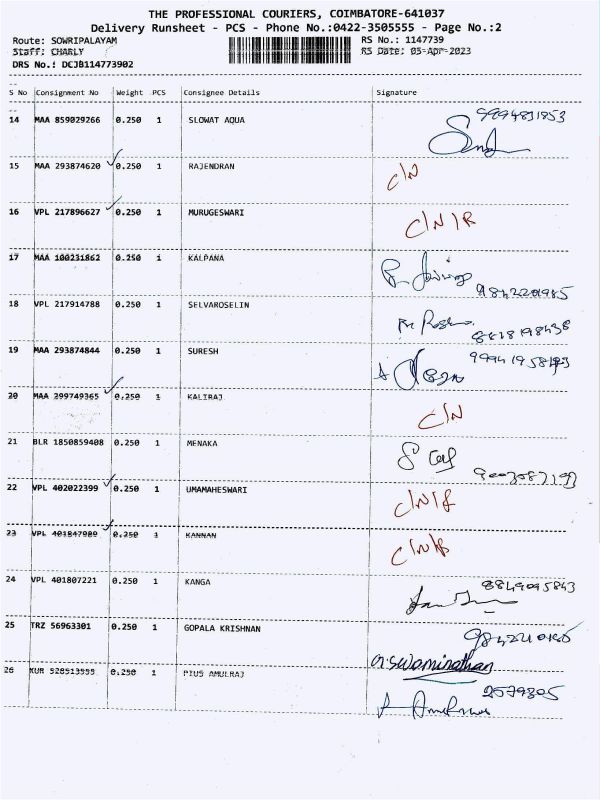 THE PROFESSIONAL COURIERS, COIMBATORE-641037
Delivery Runsheet - PCS - Phone No.:0422-3505555 - Page No.:2
Route: SOWRIPALAYAM RS No.: 1147739
Staff: CHARLY RS Date: 05-Apr-2023
DRS No.: DCJB114773902
S No Consignment No Weight PCS Consignee Details Signature
14 MAA 859029266 0.250 1 SLOWAT AQUA 9994831853
15 MAA 293874620 0.250 1 RAJENDRAN C/N
16 VPL 217896627 0.250 1 MURUGESWARI C/N/R
17 MAA 100231862 0.250 1 KALPANA
18 VPL 217914788 0.250 1 SELVAROSELIN
19 MAA 293874844 0.250 1 SURESH
20 MAA 299749365 0.250 1 KALIRAJ C/N
21 BLR 1850859408 0.250 1 MENAKA
22 VPL 402022399 0.250 1 UMAMAHESWARI
23 VPL 401847989 0.250 1 KANNAN
24 VPL 401807221 0.250 1 KANGA 8849095843
25 TRZ 56963301 0.250 1 GOPALA KRISHNAN
n.swaminathan
26 KUR 528513555 0.250 1 PIUS AMULRAJ 2579805